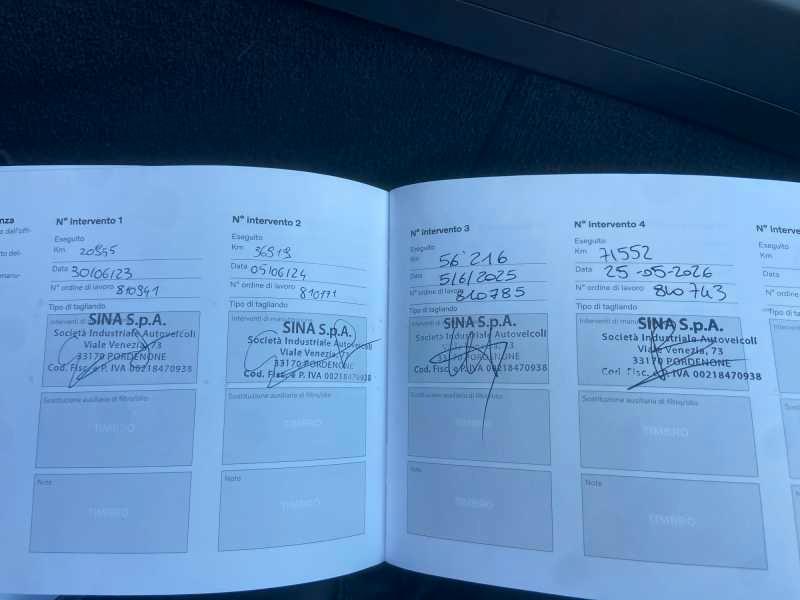 nza
N° intervento 1
Eseguito
Km 20945
Data 30/06/23
N° ordine di lavoro 810941
Tipo di tagliando
Interventi di
SINA S.p.A.
Società Industriale Autoveicoli
Viale Venezia, 73
33170 PORDENONE
Cod. Fisc. e P. IVA 00218470938
Sostituzione ausiliaria di filtro/olio
TIMBRO
Note
TIMBRO
N° intervento 2
Eseguito
Km
Data 05/06/24
N° ordine di lavoro
Tipo di tagliando
Interventi di manutenzione
SINA S.p.A.
Società Industriale Autoveicoli
Viale Venezia, 73
33170 PORDENONE
Cod. Fisc. e P. IVA 00218470938
Sostituzione ausiliaria di filtro/olio
TIMBRO
Note
TIMBRO
N° intervento 3
Eseguito
Km 56'216
Data 5/6/2025
N° ordine di lavoro 810785
Tipo di tagliando
Interventi di
SINA S.p.A.
Società Industriale Autoveicoli
Viale Venezia, 73
33170 PORDENONE
Cod. Fisc. e P. IVA 00218470938
Sostituzione ausiliaria di filtro/olio
TIMBRO
Note
TIMBRO
N° intervento 4
Eseguito
Km 71552
Data 25-05-2026
N° ordine di lavoro 810743
Tipo di tagliando
Interventi di
SINA S.p.A.
Società Industriale Autoveicoli
Viale Venezia, 73
33170 PORDENONE
Cod. Fisc. e P. IVA 00218470938
Sostituzione ausiliaria di filtro/olio
TIMBRO
Note
TIMBRO
N° interv
Eseguito
Km
Data
N° ordine
Tipo di